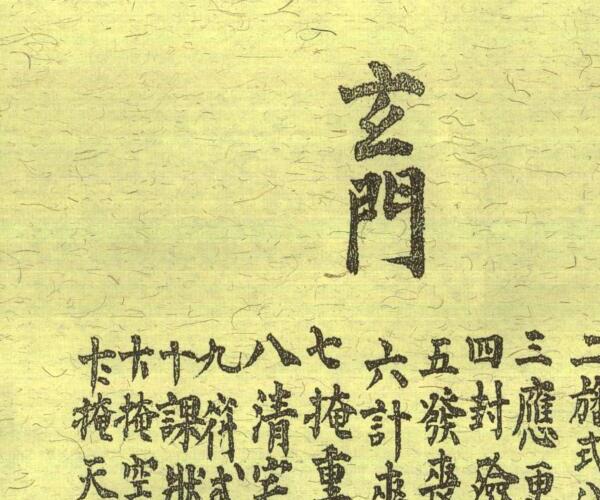 玄門
二
三應更
四封殮
五發喪
六計
七掩重
八清宅
九符式
十課狀
十一掩空
十二掩天